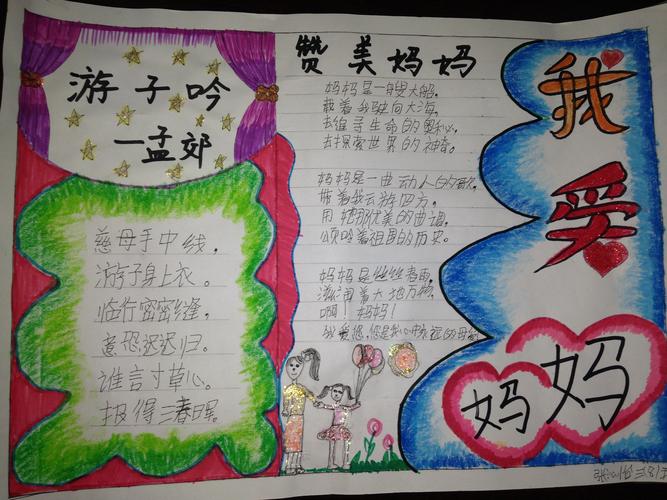 游子吟
一孟郊
慈母手中线，
游子身上衣。
临行密密缝，
意恐迟迟归。
谁言寸草心。
报得三春晖。
赞美妈妈
妈妈是一艘大船，
载着我驶向大海，
去追寻生命的奥秘，
去探索世界的神奇。
妈妈是一曲动人的歌，
带着我云游四方，
用那优美的曲调，
颂吟着祖国的历史。
妈妈是丝丝春雨，
滋润着大地万物，
啊！妈妈！
我爱您，您是我心中永远的母亲
我爱
妈妈